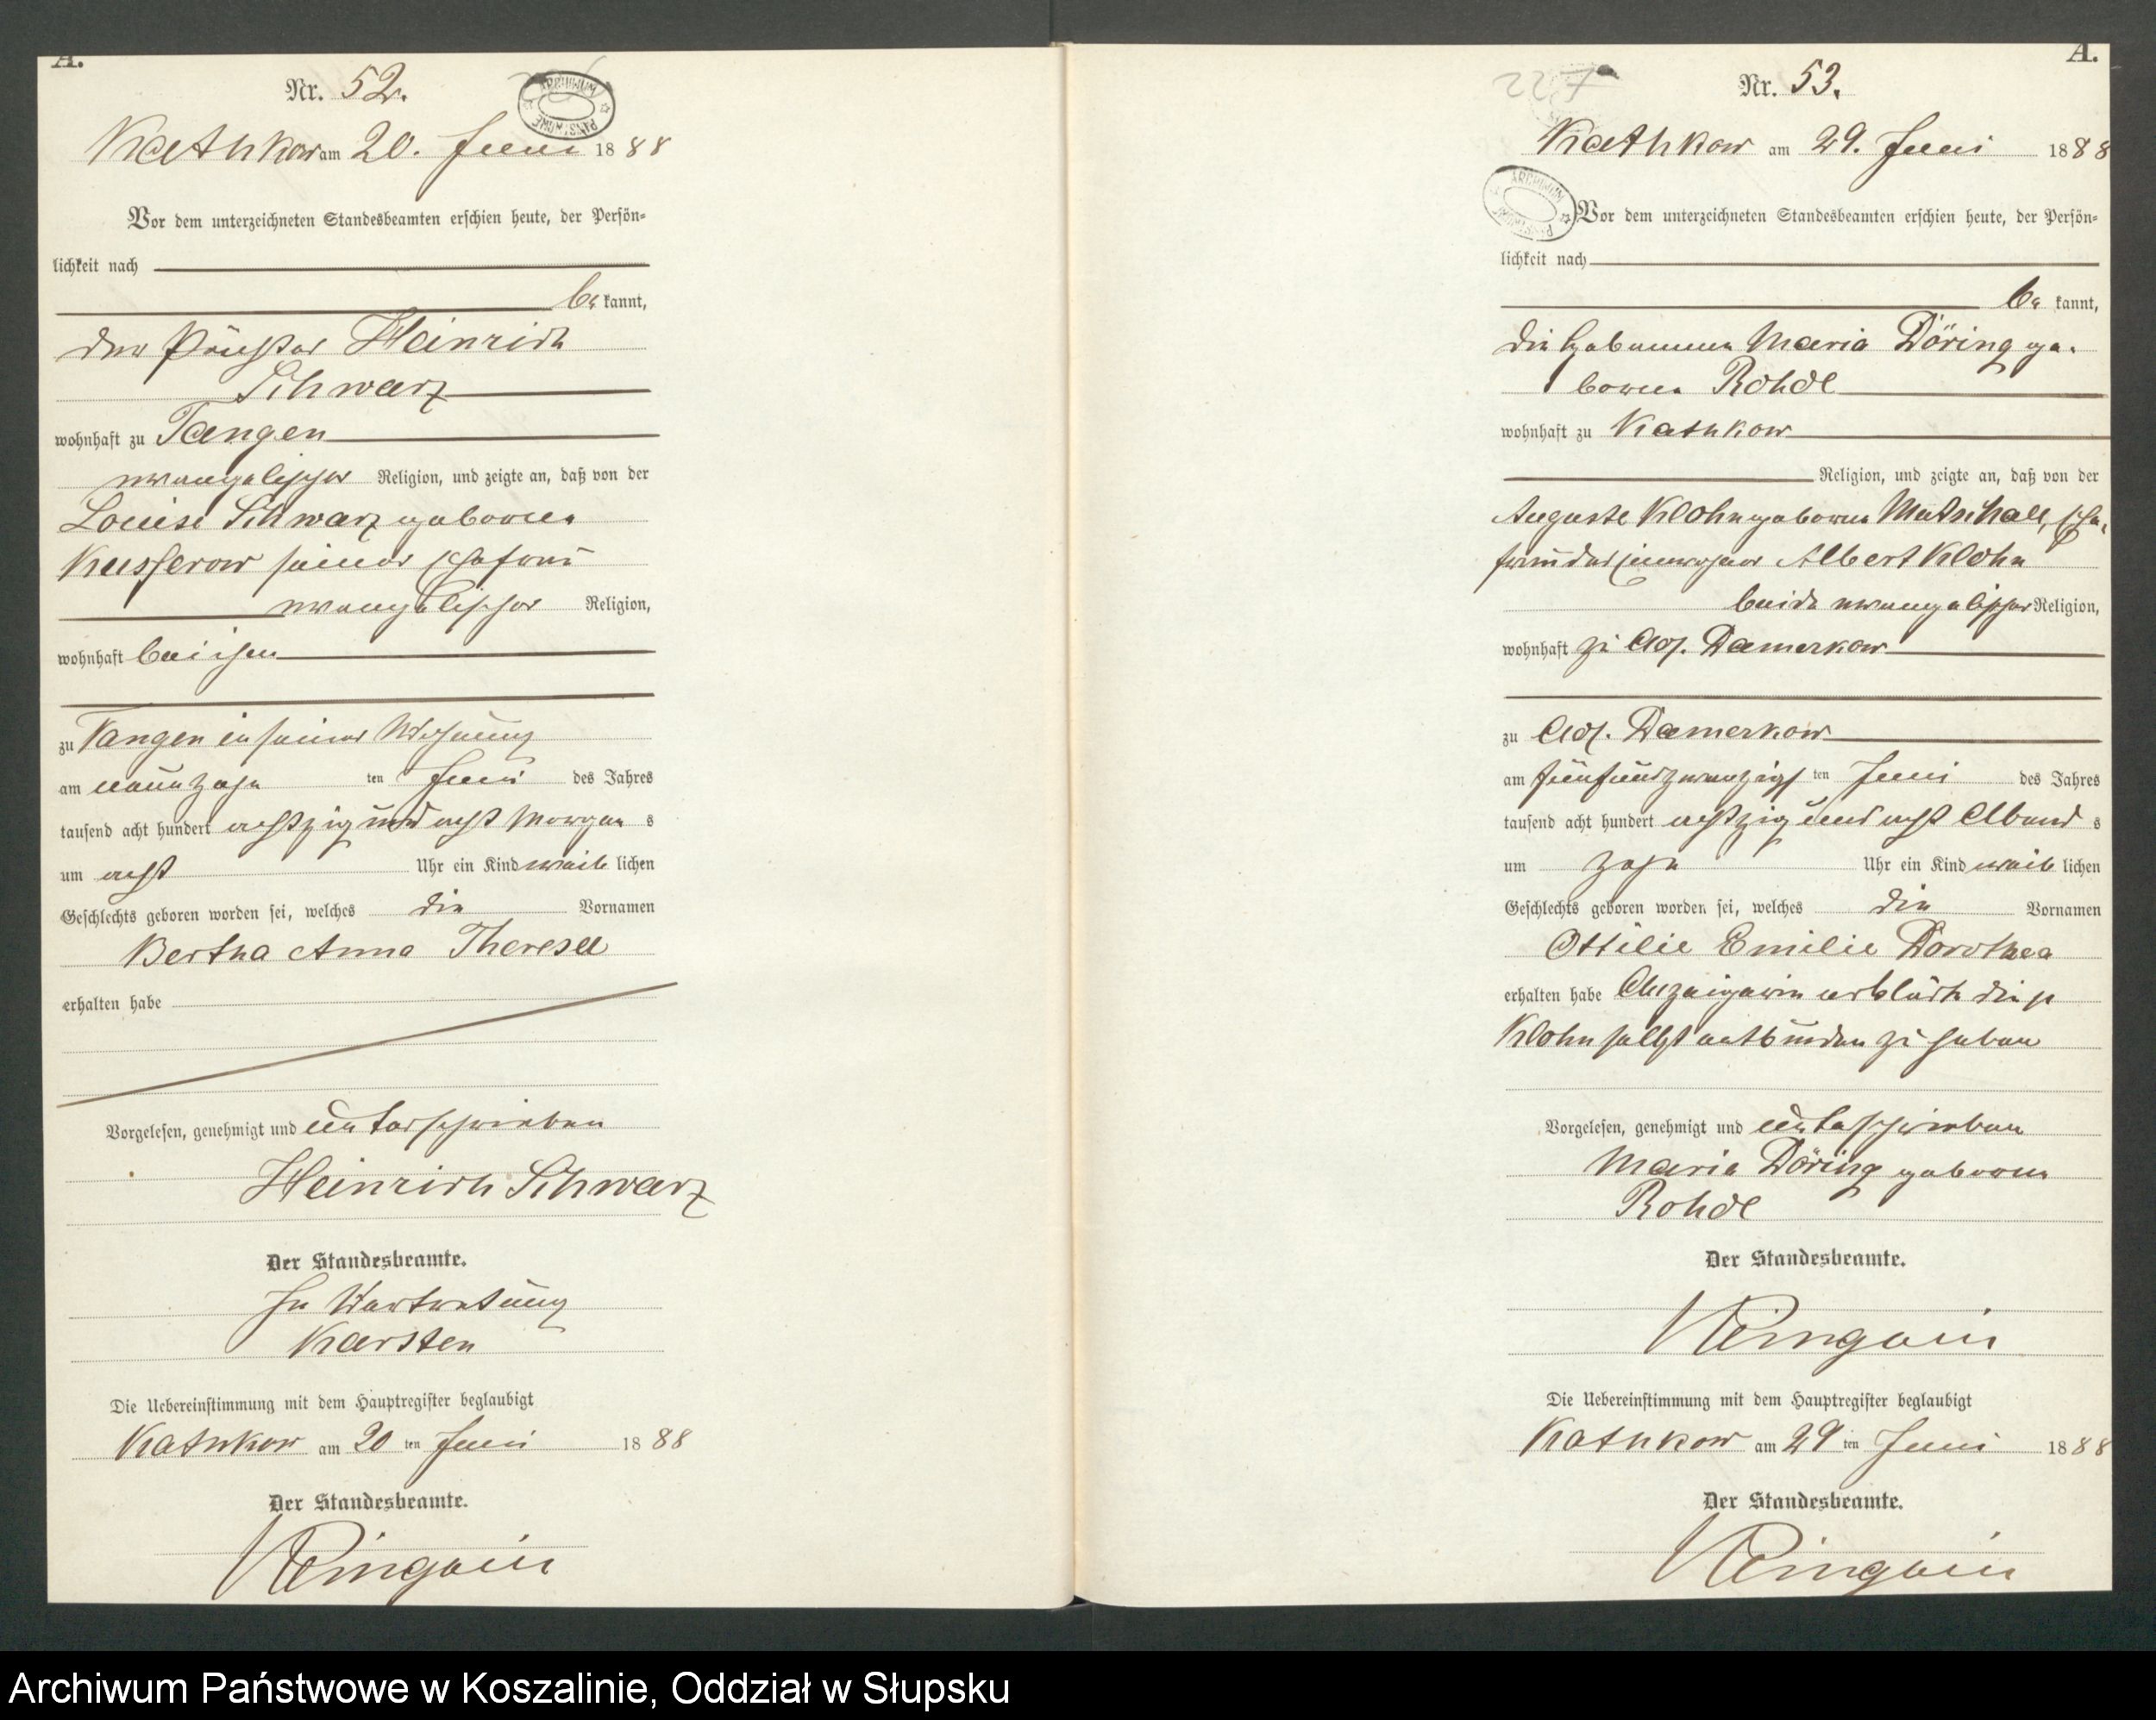 A.
Nr. 52.
Kathkow am 20. Juni 1888
Vor dem unterzeichneten Standesbeamten erschien heute, der Persön-
lichkeit nach
be kannt,
der Heinrich
Schwarz
wohnhaft zu Tangen
evangelischer Religion, und zeigte an, daß von der
Louise Schwarz geborene
Kusserow seiner Ehefrau
evangelischer Religion,
wohnhaft bei ihm
zu Tangen in seiner Wohnung
am neunzehn ten Juni des Jahres
tausend acht hundert achtzig und acht Morgen s
um acht Uhr ein Kind weib lichen
Geschlechts geboren worden sei, welches die Vornamen
Bertha Anna Therese
erhalten habe
Vorgelesen, genehmigt und unterschrieben
Heinrich Schwarz
Der Standesbeamte.
In Vertretung
Karsten
Die Uebereinstimmung mit dem Hauptregister beglaubigt
Kathkow am 20 ten Juni 1888
Der Standesbeamte.
A.
227
Nr. 53.
Kathkow am 29. Juni 1888
Vor dem unterzeichneten Standesbeamten erschien heute, der Persön-
lichkeit nach
be kannt,
die Hebamme Maria Döring ge-
borene Rohde
wohnhaft zu Kathkow
Religion, und zeigte an, daß von der
Auguste Klohn geborene Ehe-
frau des Einwohner Albert Klohn
beide evangelischer Religion,
wohnhaft zu Adl. Damerkow
zu Adl. Damerkow
am fünfundzwanzigst ten Juni des Jahres
tausend acht hundert achtzig und acht Abend s
um zehn Uhr ein Kind weib lichen
Geschlechts geboren worden sei, welches die Vornamen
Ottilie Emilie Dorothea
erhalten habe Anzeigerin erklärte die p
Klohn selbst entbunden zu haben
Vorgelesen, genehmigt und unterschrieben
Maria Döring geborene
Rohde
Der Standesbeamte.
Die Uebereinstimmung mit dem Hauptregister beglaubigt
Kathkow am 29 ten Juni 1888
Der Standesbeamte.
Archiwum Państwowe w Koszalinie, Oddział w Słupsku